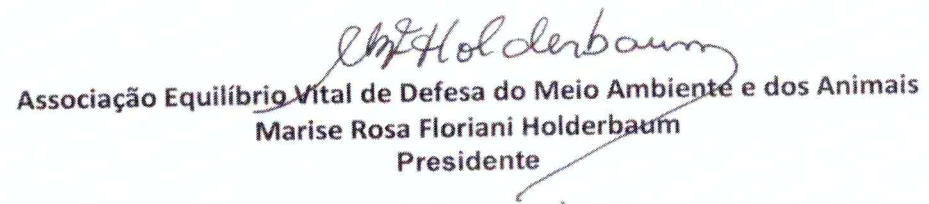 Holderbaum
Associação Equilíbrio Vital de Defesa do Meio Ambiente e dos Animais
Marise Rosa Floriani Holderbaum
Presidente